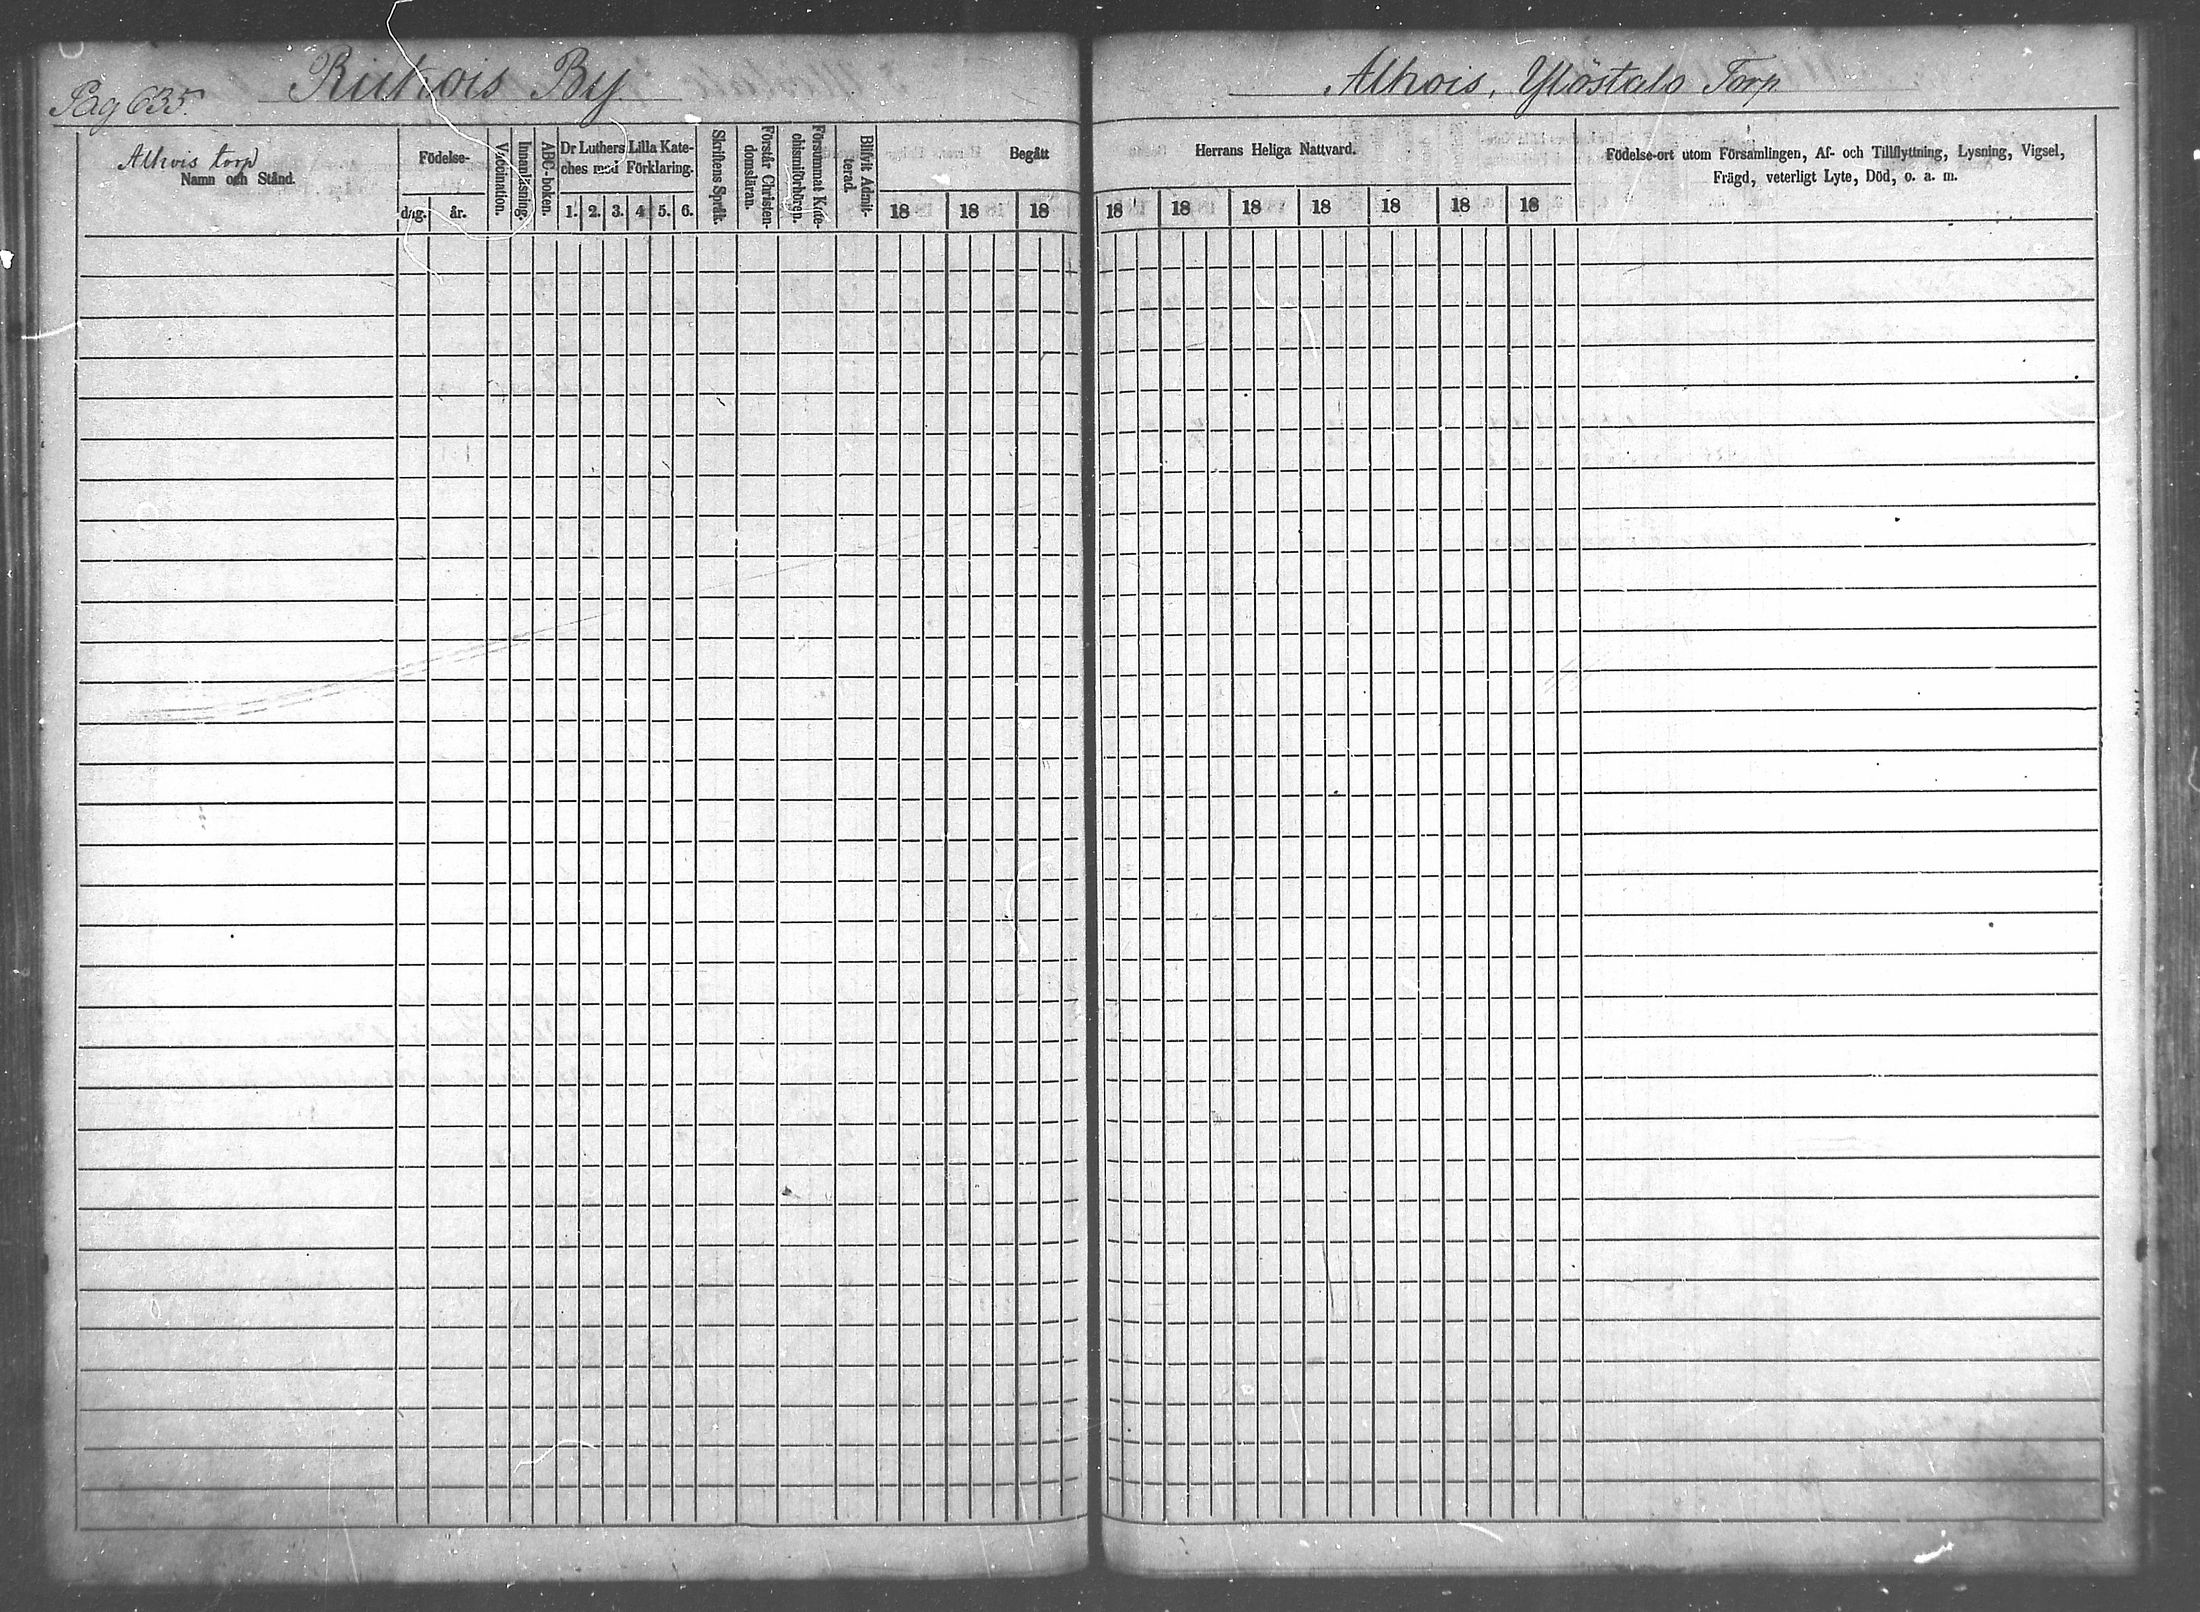 Pag 635.
Riukois By.
Alhois, Ylöstalo Torp
Alhois torp
Namn och Stånd.
Födelse-
dag.
år.
Vaccination.
Innanläsning.
ABC-boken.
Dr Luthers Lilla Kate-
ches med Förklaring.
1. 2. 3. 4. 5. 6.
Skriftens Språk.
Förstår Christen-
domsläran.
Försummat Kate-
chismiförhören.
Blifvit Admit-
terad.
Begått
18 18 18
Herrans Heliga Nattvard.
18 18 18 18 18 18 18
Födelse-ort utom Församlingen, Af- och Tillflyttning, Lysning, Vigsel,
Frägd, veterligt Lyte, Död, o. a. m.